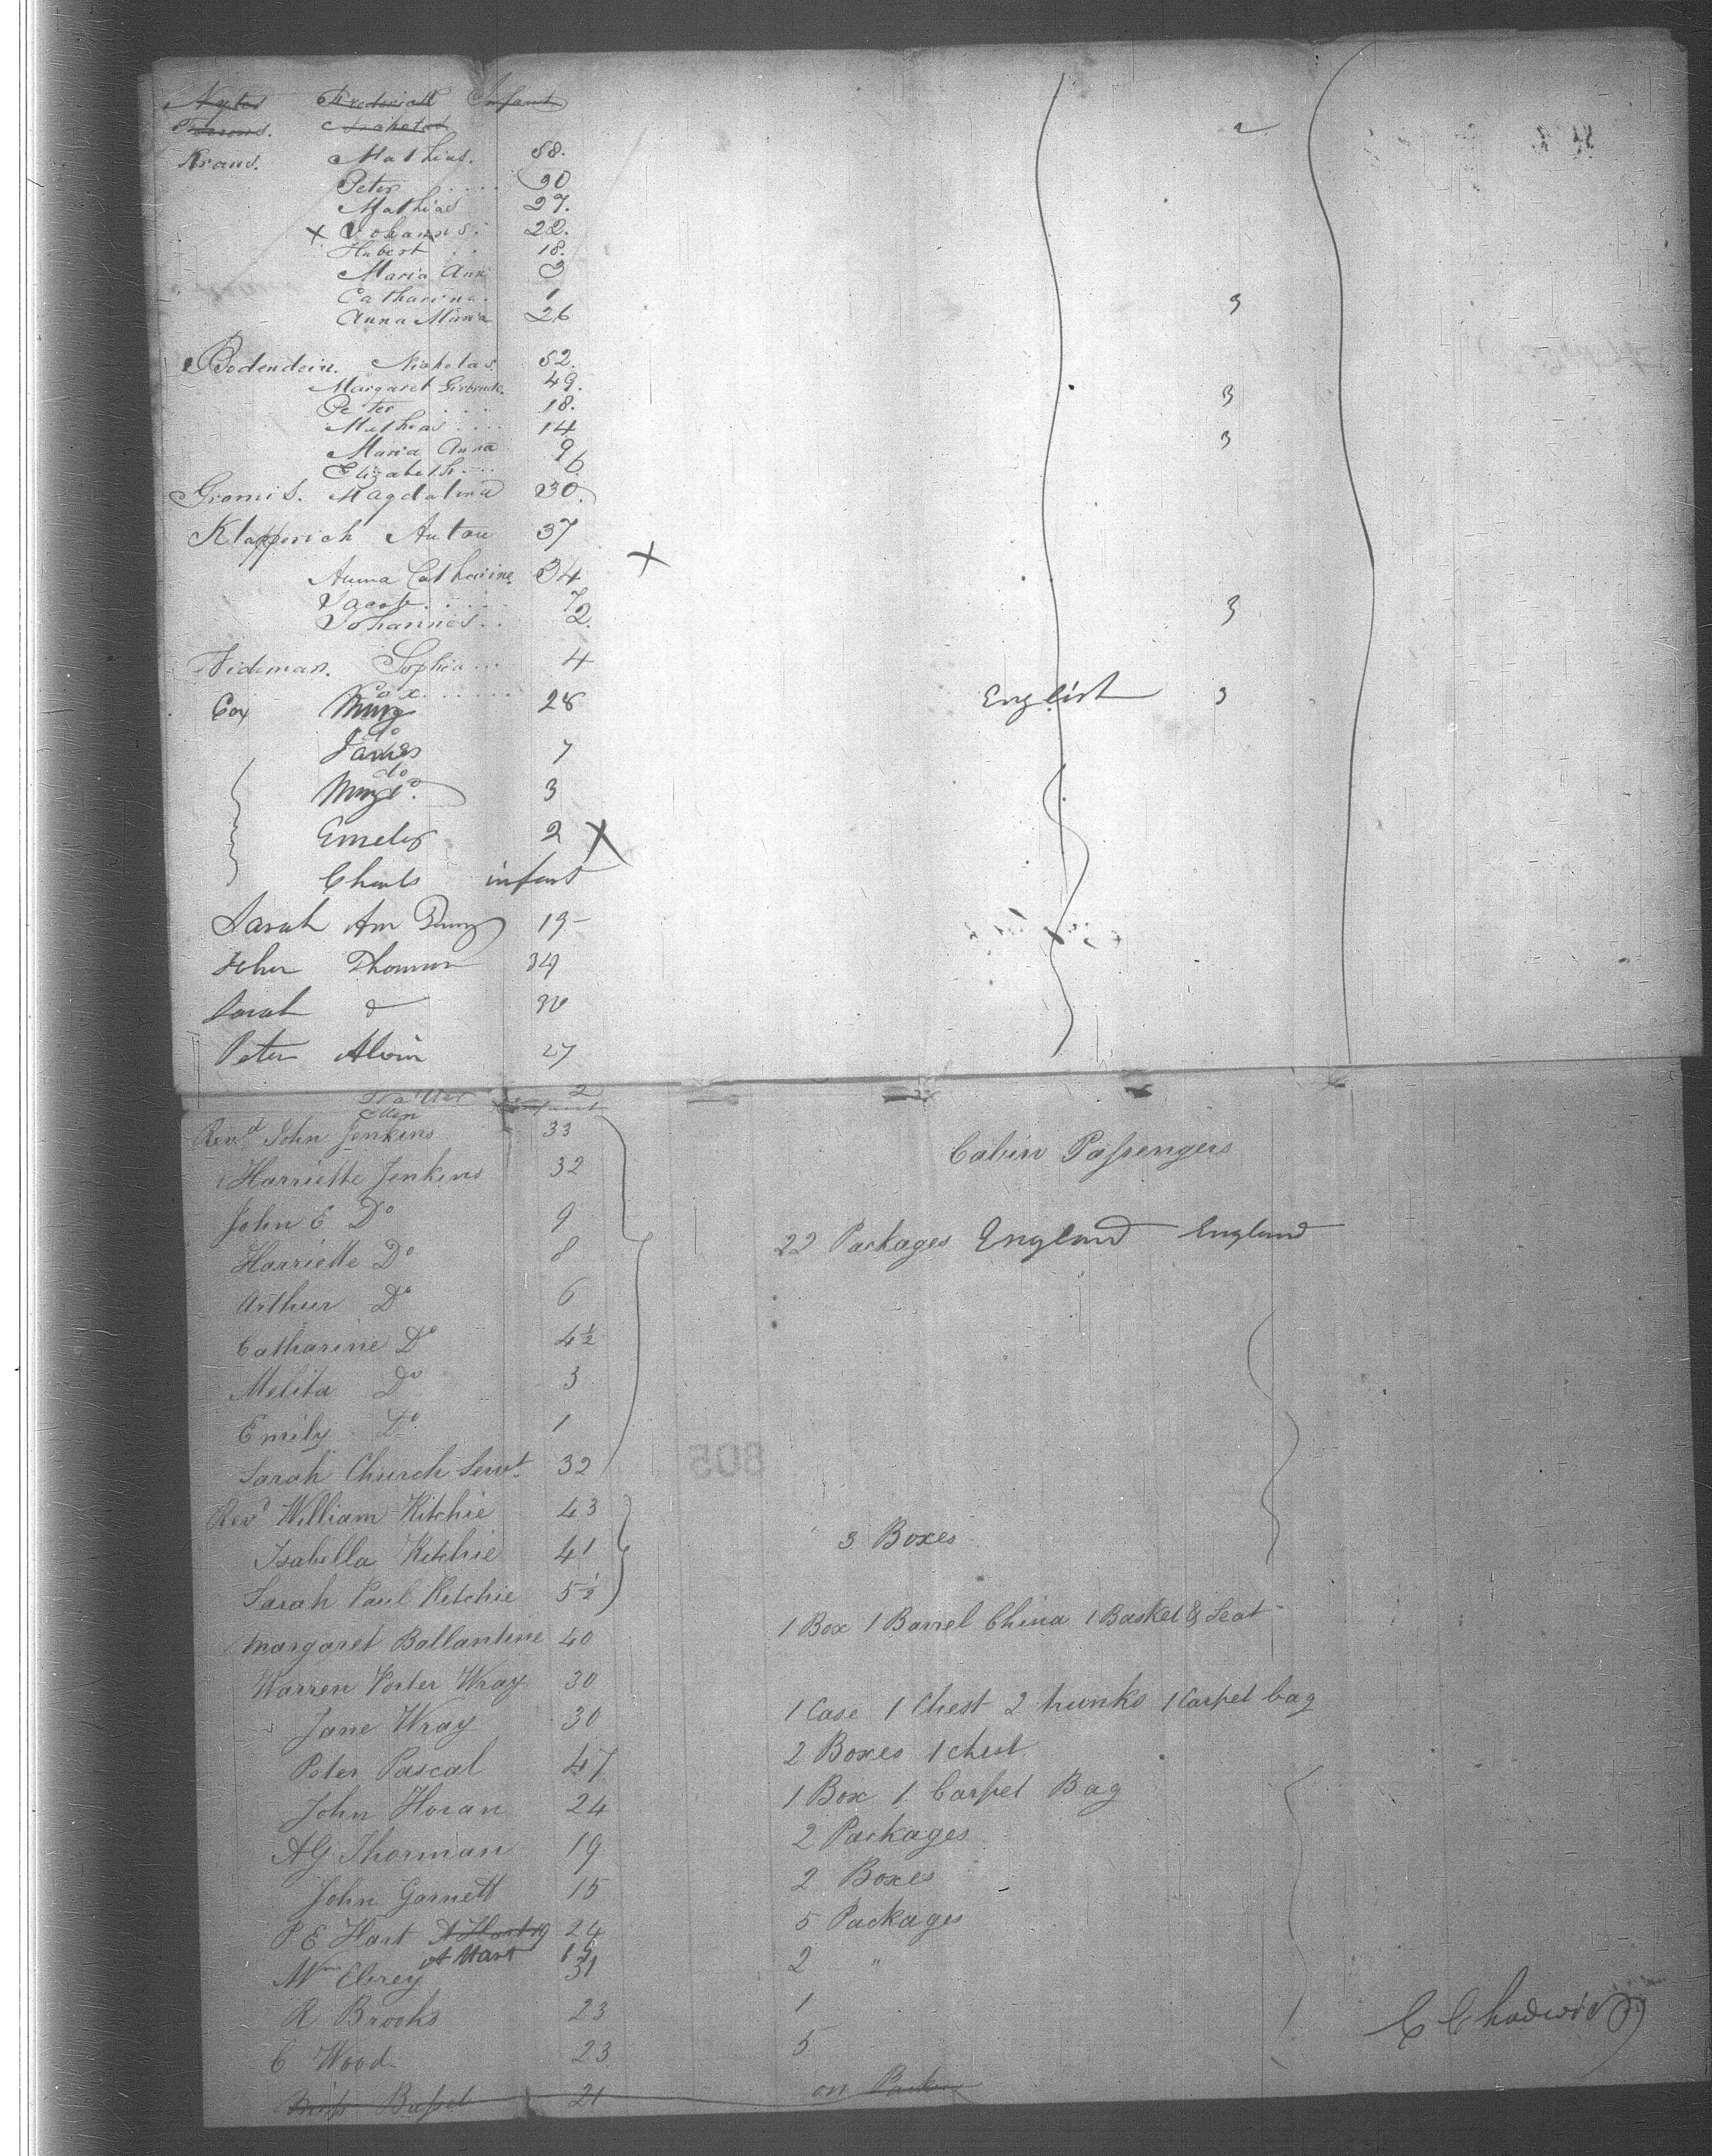 Frederick Infant
Kraus. Mathias. 58.
Peter .... 30
Mathias 27.
x Johannes. 22.
Hubert .. 18.
Maria Ann 3
Catharina. 1 3
Anna Maria 26
Bodendein. Nicholas. 52.
Margaret 49. 3
Peter .... 18.
Mathias .... 14 3
Maria Anna 9
Elizabeth.... 6
Magdalena 30.
Klapperich Anton 37
x
Anna Catharine. 34
Jacob..... 7 3
Johannes.. 2.
Sophia... 4
Cox ......
Cox 28 English 3
do
James 7
do
3
2 X
Charls infant
Sarah Ann 19
John Thomas 34
Sarah do
Peter 27
2
Ellen Infant
Revd John Jenkins 33
Cabin Passengers
Harriette Jenkins 32
John E Do 9
22 Packages England England
Harriette Do 8
Arthur Do 6
Catharine Do 4½
Melita Do 3
Emily Do 1
Sarah Church Servt. 32
805
Revd William Ritchie 43
Isabella Ritchie 41 3 Boxes
Sarah Paul Ritchie 5½
Margaret Ballantine 40 1 Box 1 Barrel China 1 Basket & Seat
Warren Porter Wray 30
Jane Wray 30 1 Case 1 Chest 2 trunks 1 Carpet bag
Peter Pascal 47 2 Boxes 1 chest
John Horan 24 1 Box 1 Carpet Bag
AG Thorman 19 2 Packages
John Garnett 15 2 Boxes
P E Hart A Hart 19 24 5 Packages
A Hart 19
Wm 31 2 "
R Brooks 23 1
C Chadwick
C Wood 23 5
Miss 21 on